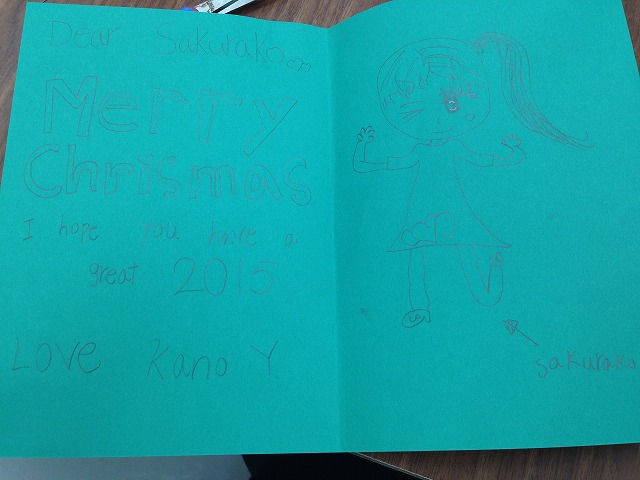 Dear Sakurako
Merry
Chrismas
I hope you have a
great 2015
Love Kano Y.
sakurako